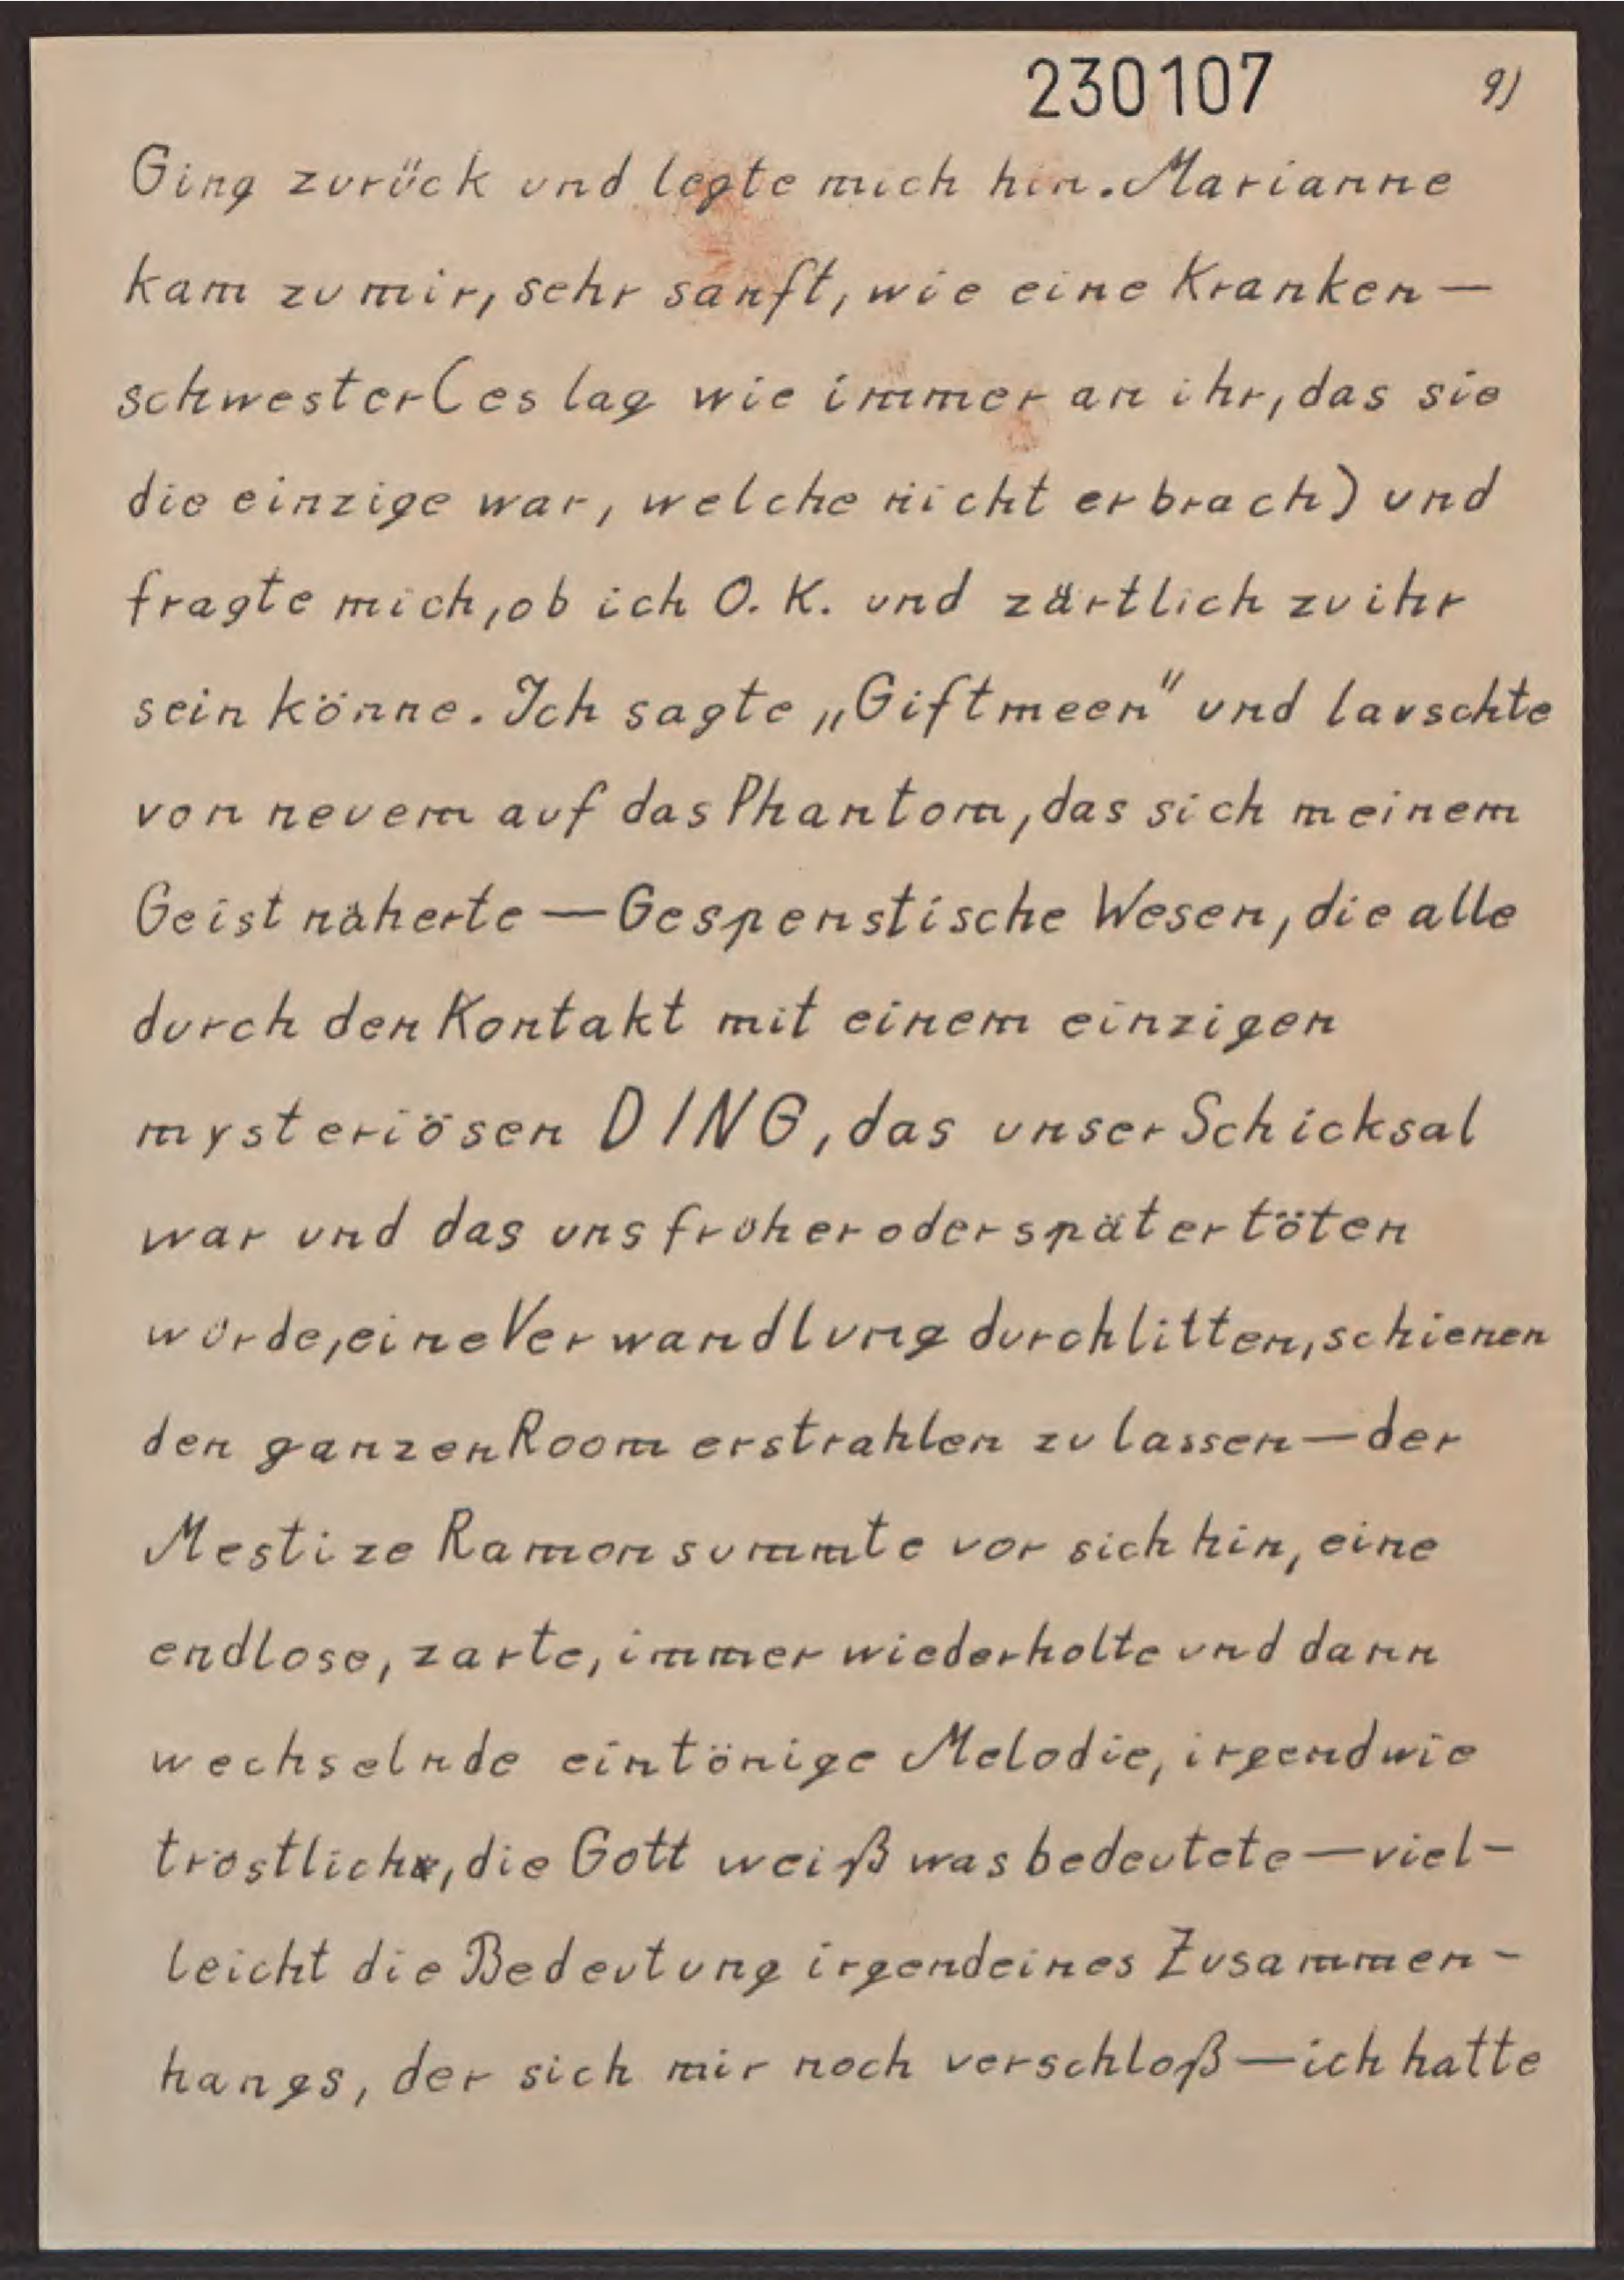 230107 9)
Ging zurück und legte mich hin. Marianne
kam zu mir, sehr sanft, wie eine Kranken—
schwester (es lag wie immer an ihr, das sie
die einzige war, welche nicht erbrach) und
fragte mich, ob ich O. K. und zärtlich zu ihr
sein könne. Ich sagte „Giftmeen" und lauschte
von neuem auf das Phantom, das sich meinem
Geist näherte — Gespenstische Wesen, die alle
durch den Kontakt mit einem einzigen
mysteriösen DING, das unser Schicksal
war und das uns früher oder später töten
würde, eine Verwandlung durchlitten, schienen
den ganzen Room erstrahlen zu lassen — der
Mestize Ramon summte vor sich hin, eine
endlose, zarte, immer wiederholte und dann
wechselnde eintönige Melodie, irgendwie
tröstlich, die Gott weiß was bedeutete — viel-
leicht die Bedeutung irgendeines Zusammen-
hangs, der sich mir noch verschloß — ich hatte